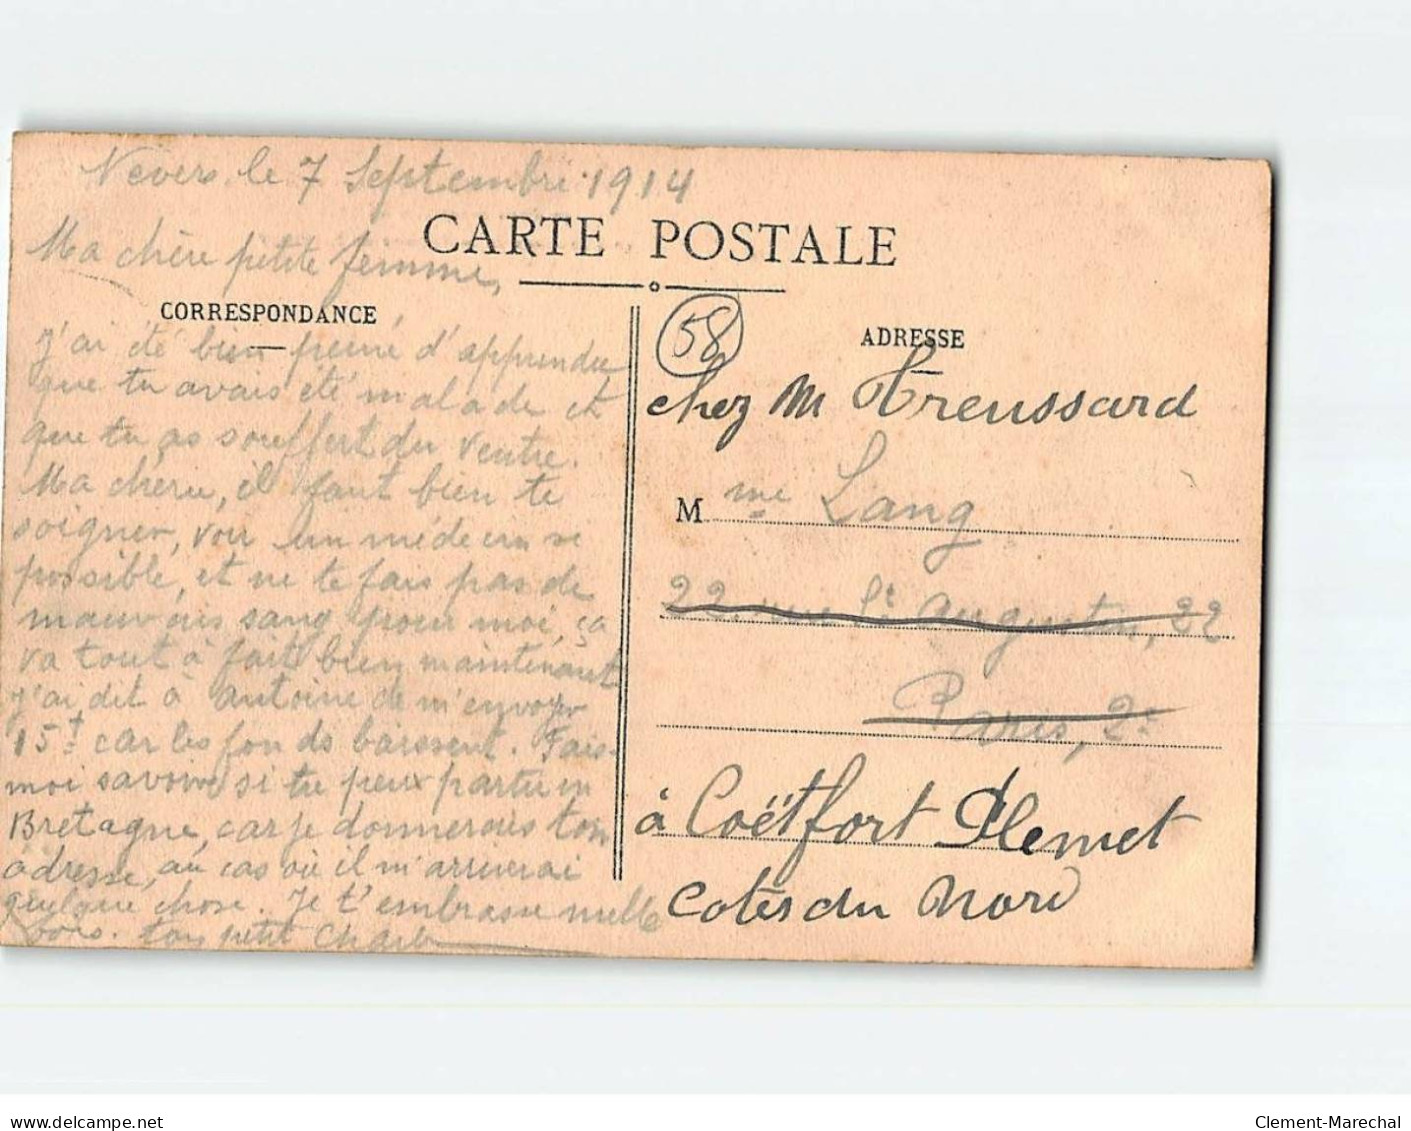 Nevers le 7 Septembre 1914
Ma chère petite femme,
CARTE POSTALE
CORRESPONDANCE
j'ai été bien peiné d'apprendre
que tu avais été malade et
que tu as souffert du ventre.
Ma chérie, il faut bien te
soigner, voir un médecin si
possible, et ne te fais pas de
mauvais sang pour moi, ça
va tout à fait bien maintenant
j'ai dit à Antoine de m'envoyer
15f. car les fonds baissent. Fais-
moi savoir si tu peux partir en
Bretagne, car je donnerais ton
adresse, au cas où il m'arriverai
quelque chose. Je t'embrasse mille
fois. ton petit Charles
58
ADRESSE
chez M Treussard
Mme Lang
22 rue St Augustin, 22
Paris, 2e
à Coëtfort Plemet
Cotes du Nord
delcampe.net
Clement-Marechal